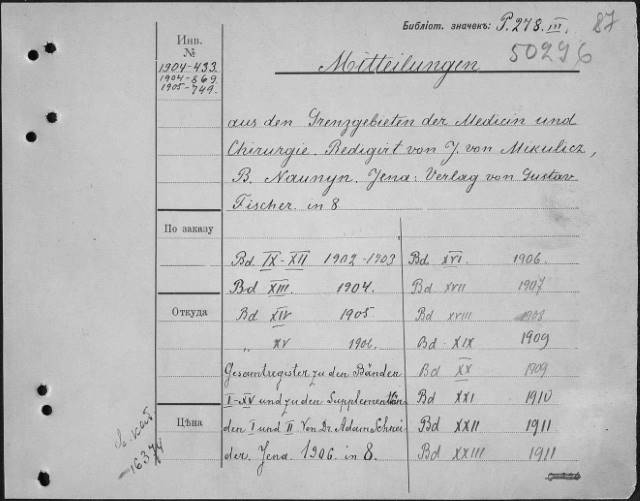 Библіот. значекъ: P.278.III. 87
50296
Инв.
№
1904-433.
1904-569.
1905-749.
Mitteilungen
aus den Grenzgebieten der Medicin und
Chirurgie. Redigirt von J. von Mikulicz,
B. Naunyn. Jena: Verlag von Gustav
Fischer. in 8
По заказу
Bd IX-XII 1902-1903
Bd XIII. 1904.
Откуда
Bd XIV 1905
„ XV 1906.
Gesamtregister zu den Bänden
I-XV und zu den Supplementbän
Цѣна
den I und II. Von Dr. Adam Schnei
der. Jena. 1906. in 8.
Bd XVI. 1906.
Bd XVII 1907
Bd XVIII 1908
Bd - XIX 1909
Bd XX 1909
Bd XXI 1910
Bd XXII 1911
Bd XXIII 1911